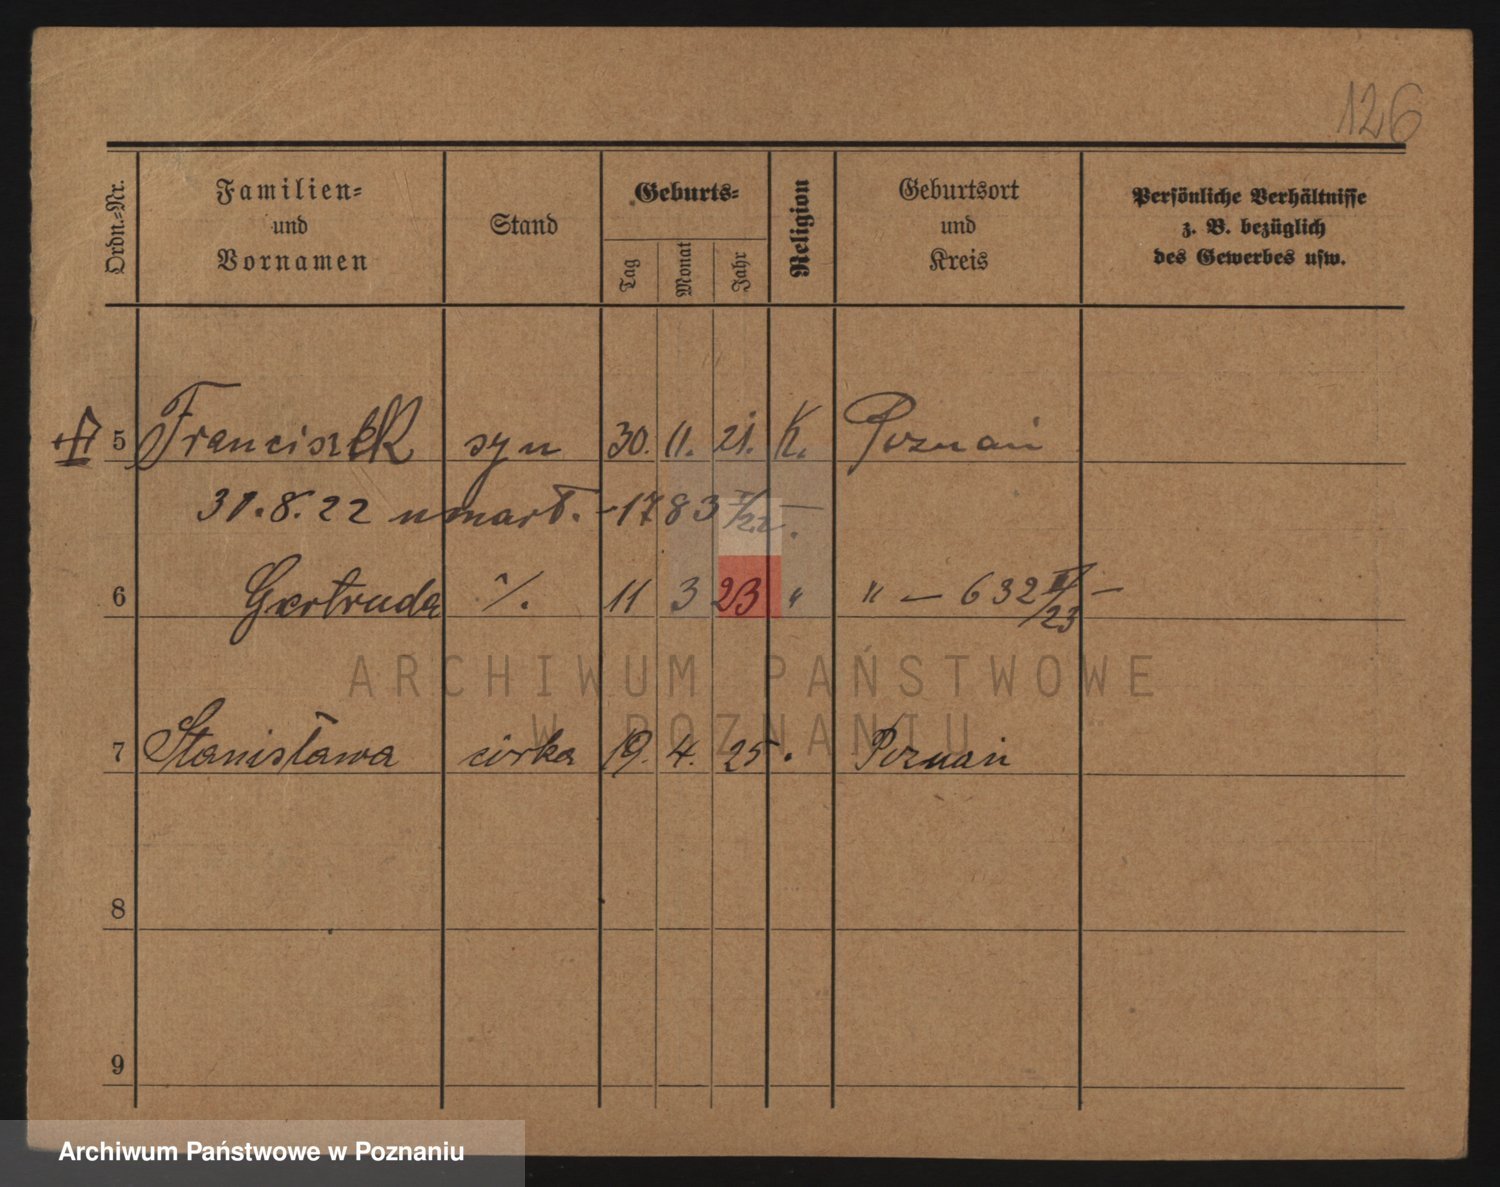 126
Ordn.-Nr. Familien- und Vornamen Stand Geburts- Tag Monat Jahr Religion Geburtsort und Kreis Persönliche Verhältnisse z. B. bezüglich des Gewerbes usw.
5 Franciszek syn 30. 11. 21. K. Poznań
31.8.22 umarł. - 1783
6 Gertruda 11 3 23 " " — 632 II/23 —
ARCHIWUM PAŃSTWOWE
W POZNANIU
7 Stanisława córka 19. 4. 25 . Poznań
8
9
Archiwum Państwowe w Poznaniu